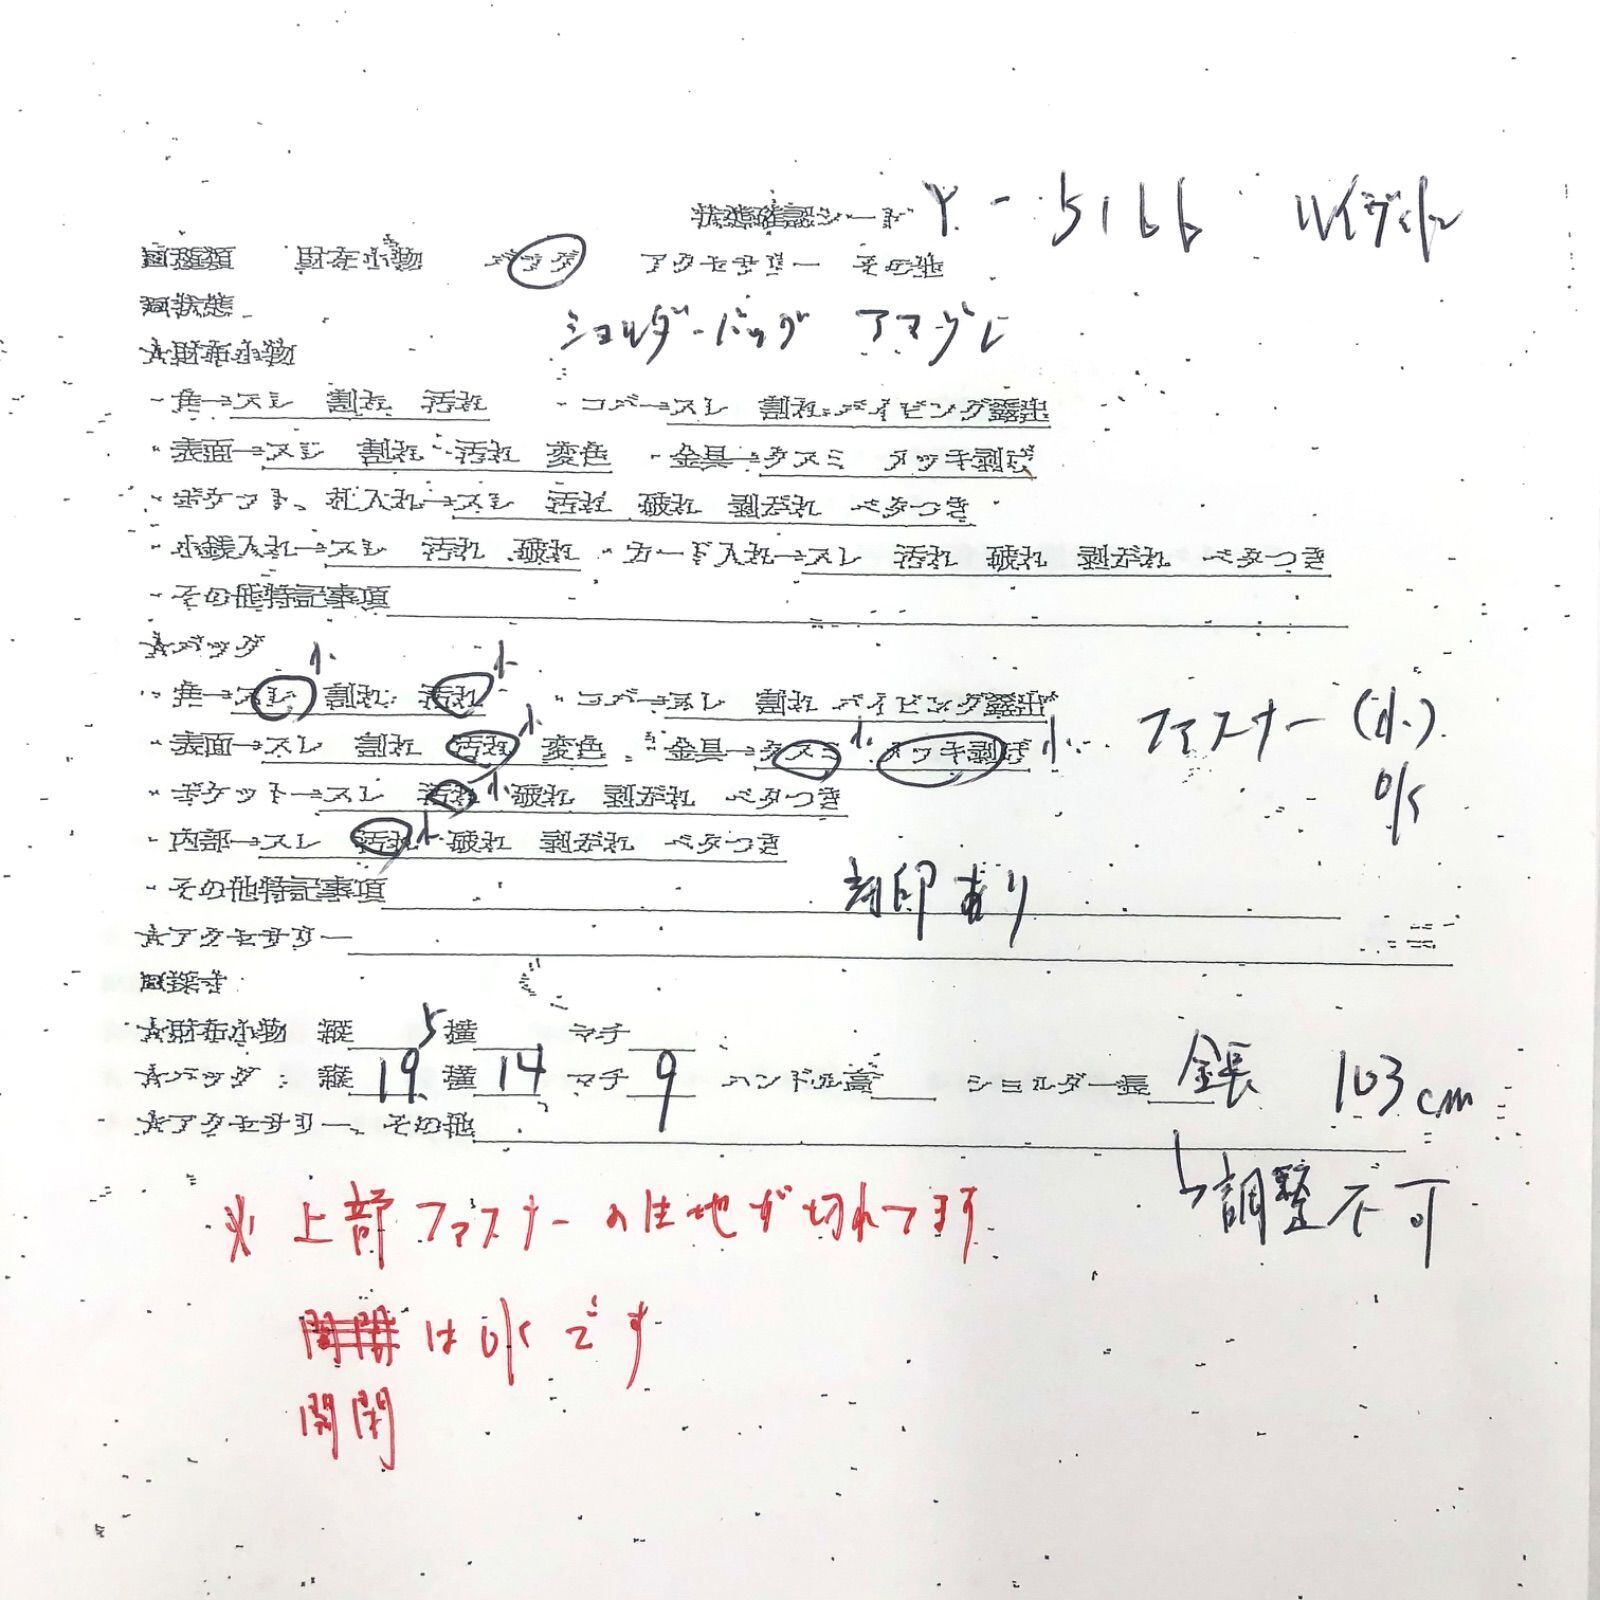 状態確認シート Y-5166 ルイヴィトン
□種類 財布小物 バッグ アクセサリー その他
□状態 ショルダーバッグ アマゾン
☆財布小物
・角→スレ 割れ 汚れ ・コバ→スレ 割れ パイピング露出
・表面→スレ 割れ 汚れ 変色 ・金具→クスミ メッキ剥げ
・ポケット、札入れ→スレ 汚れ 破れ 剥がれ ベタつき
・小銭入れ→スレ 汚れ 破れ ・カード入れ→スレ 汚れ 破れ 剥がれ ベタつき
・その他特記事項
☆バッグ
・角→スレ 小 割れ 汚れ 小 ・コバ→スレ 割れ パイピング露出
・表面→スレ 割れ 汚れ 小 変色 ・金具→クスミ 小 メッキ剥げ 小 ファスナー(小)
・ポケット→スレ 汚れ 小 破れ 剥がれ ベタつき
・内部→スレ 汚れ 小 破れ 剥がれ ベタつき
・その他特記事項 刻印あり
☆アクセサリー
□採寸
☆財布小物 縦 横 マチ
☆バッグ 縦 19 横 14 マチ 9 ハンドル高 ショルダー長 全長 103cm
☆アクセサリー、その他
↳調整不可
※ 上部ファスナーの生地が切れてます
はOKです
開閉